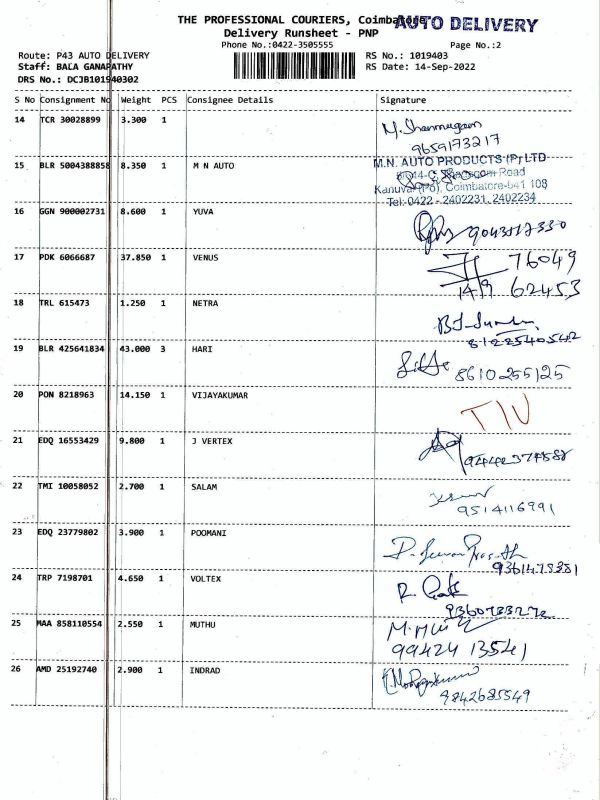 THE PROFESSIONAL COURIERS, Coimbatore
AUTO DELIVERY
Delivery Runsheet - PNP
Phone No.:0422-3505555
Page No.:2
Route: P43 AUTO DELIVERY
RS No.: 1019403
Staff: BALA GANAPATHY
RS Date: 14-Sep-2022
DRS No.: DCJB101940302
S No Consignment No Weight PCS Consignee Details Signature
14 TCR 30028899 3.300 1
M. Shanmugam
9659173217
15 BLR 5004388858 8.350 1 M N AUTO
M.N. AUTO PRODUCTS (P) LTD
Road
Kanuvai (Po), Coimbatore-641 108
Tel:0422 - 2402231, 2402234
16 GGN 900002731 8.600 1 YUVA
17 PDK 6066687 37.850 1 VENUS
76049
14/9 62453
18 TRL 615473 1.250 1 NETRA
8122540542
19 BLR 425641834 43.000 3 HARI
8610255125
20 PON 8218963 14.150 1 VIJAYAKUMAR
21 EDQ 16553429 9.800 1 J VERTEX
22 TMI 10058052 2.700 1 SALAM
9514116991
23 EDQ 23779802 3.900 1 POOMANI
24 TRP 7198701 4.650 1 VOLTEX
25 MAA 858110554 2.550 1 MUTHU
99424 13541
26 AMD 25192740 2.900 1 INDRAD
9842685549